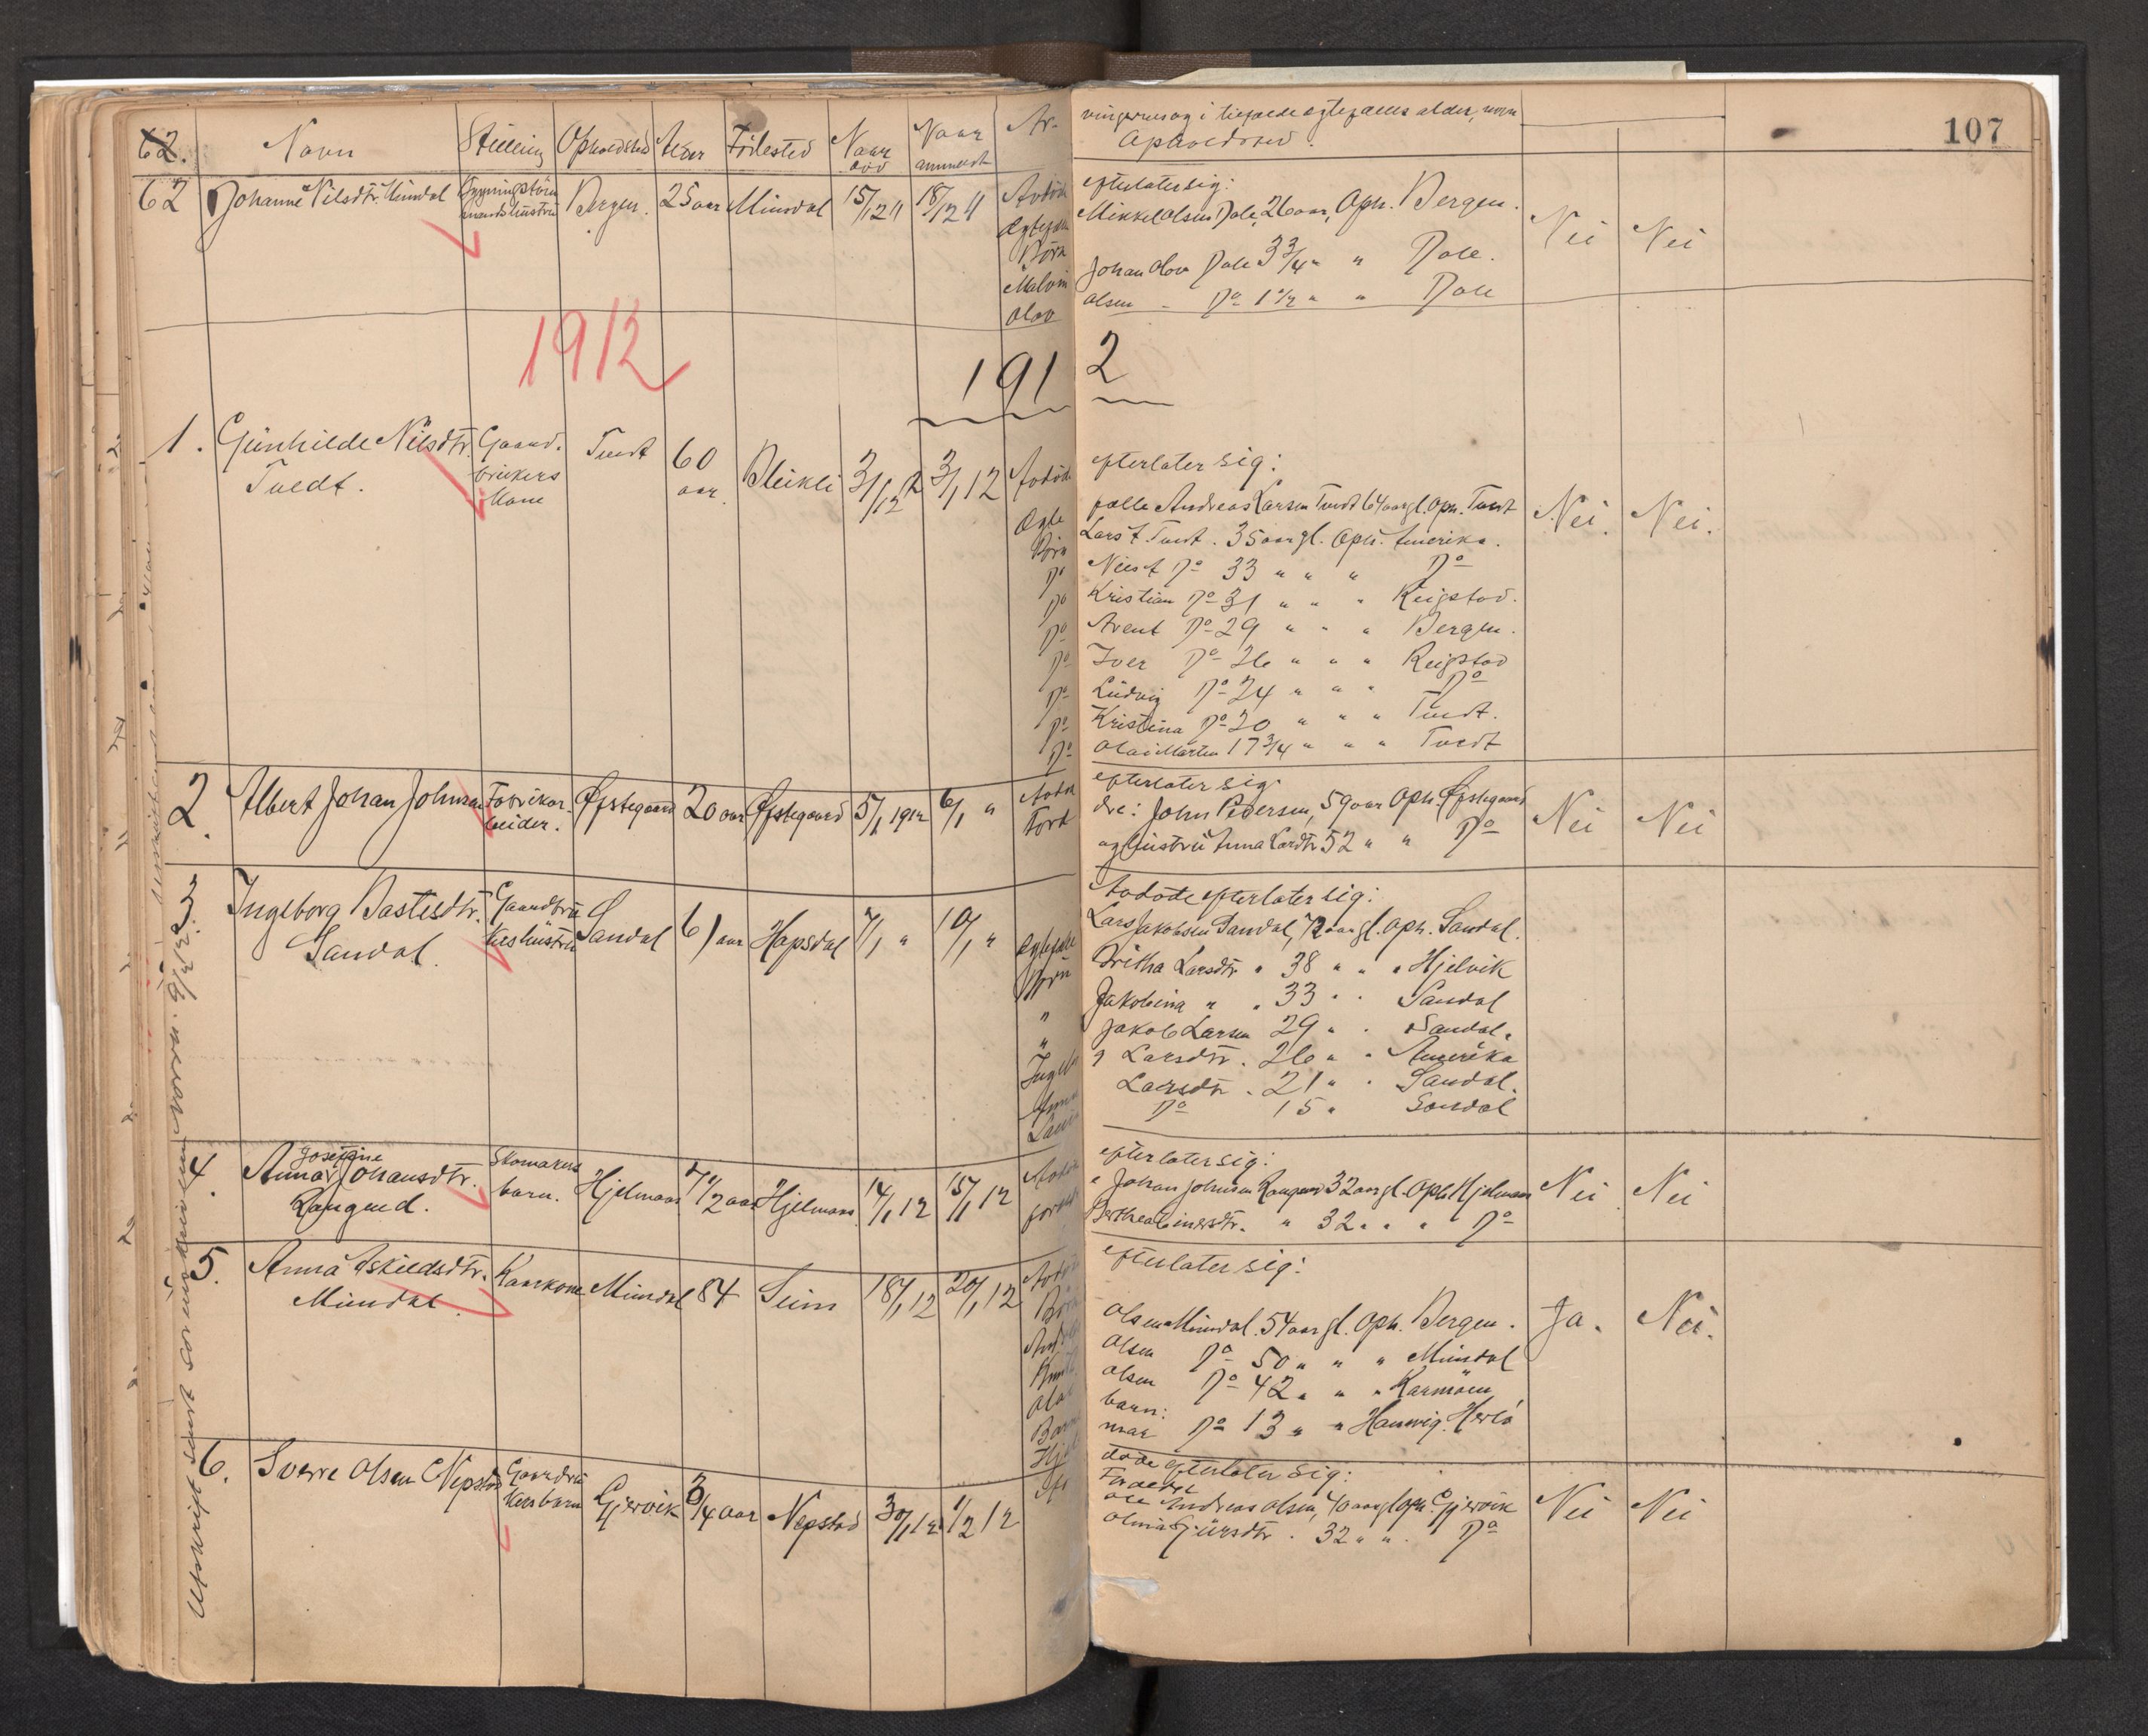 62. Navn Stilling Opholdsted Alder Födested Naar död Naar anmeldt Ar- vinger og i tilfælde egtefælles alder, navn
Opholdssted. 107
62 Johanne Nilsdtr. Mundal Bergen. 25 aar Mundal 15/12 11 18/12 11 Avdöde efterlater sig:
Egtefælle Mikkel Olsen Dale, 26 aar, Oph. Bergen. Nei Nei
Börn
Malvin Johan Olov Dale 3 3/4 " " Dale.
Olav Olsen - Do 1 1/2 " " Dale
1912
1912
1. Gunhilde Nilsdtr. Tvedt. Gaard-
brukers
kone Tvedt 60
aar. Bleikli 3/1 12 3/1 12 Avdöde efterlater sig:
Egte fælle Andreas Larsen Tvedt 64 aar gl. Oph. Tvedt Nei. Nei.
Börn Lars A. Tvedt. 35 aar gl. Oph. Amerika.
Do Nils A Do 33 " " " Do
Do Kristian Do 31 " " " Reigstad.
Do Arent Do 29 " " " Bergen.
Do Iver Do 26 " " " Reigstad
Do Ludvig Do 24 " " " Do
Do Kristina Do 20 " " " Tvedt.
Do Olai Martin 17 3/4 " " " Tvedt
2. Albert Johan Johnsen Fabrikar-
beider. Øfstegaard 20 aar Øfstegaard 5/1 1912 6/1 " Avdöde efterlater sig
Foræl dre: John Pedersen, 59 aar Oph. Øfstegaard Nei Nei
og hustru Anna Larsdtr 52 " " Do
3. Ingeborg Bastesdtr.
Sandal. Gaardbru
kers hustru Sandal 61 aar Hopsdal 7/1 " 10/1 " Avdöde efterlater sig:
Egtefælle Lars Jakobsen Sandal, 72 aar gl. Oph. Sandal.
Börn Britha Larsdtr " 38 " " " Hjelvik
" Jakobina " " 33 " " Sandal
" Jakob Larsen 29 " " Sandal.
Ingeborg Larsdtr. 26 " " Amerika
Anna Larsdtr. 21 " " Sandal.
Do 15 " Sandal
4. Anna Josefine Johansdtr.
Rangund. Skomakers
barn. Hjelmaas 7 1/2 aar Hjelmaas 14/1 12 15/1 12 Avdöde efterlater sig:
Johan Johnsen Rangund 32 aar gl. Oph. Hjelmaas Nei Nei
" 32 " " " Do
5. Anna Askildsdtr.
Mundal. Kaarkone Mundal 84 Seim 18/1 12 20/1 12 Avdöde efterlater sig:
Börn
Olsen Mundal. 54 aar gl. Oph. Bergen. Ja. Nei.
Knut Olsen Do 50 " " " Mundal
Olai Olsen Do 42 " " " Karmöen
Barne barn:
Hjalmar Do 13 " " Herlö
6. Sverre Olsen Nepstad Gaardbru
kers barn Gjervik 3/4 aar Nepstad 30/1 12 1/2 12 Avdöde efterlater sig:
Forældre
Ole Andreas Olsen, 40 aar gl Oph. Gjervik Nei Nei
32 " " Do
Utskrift sendt sorenskriveren